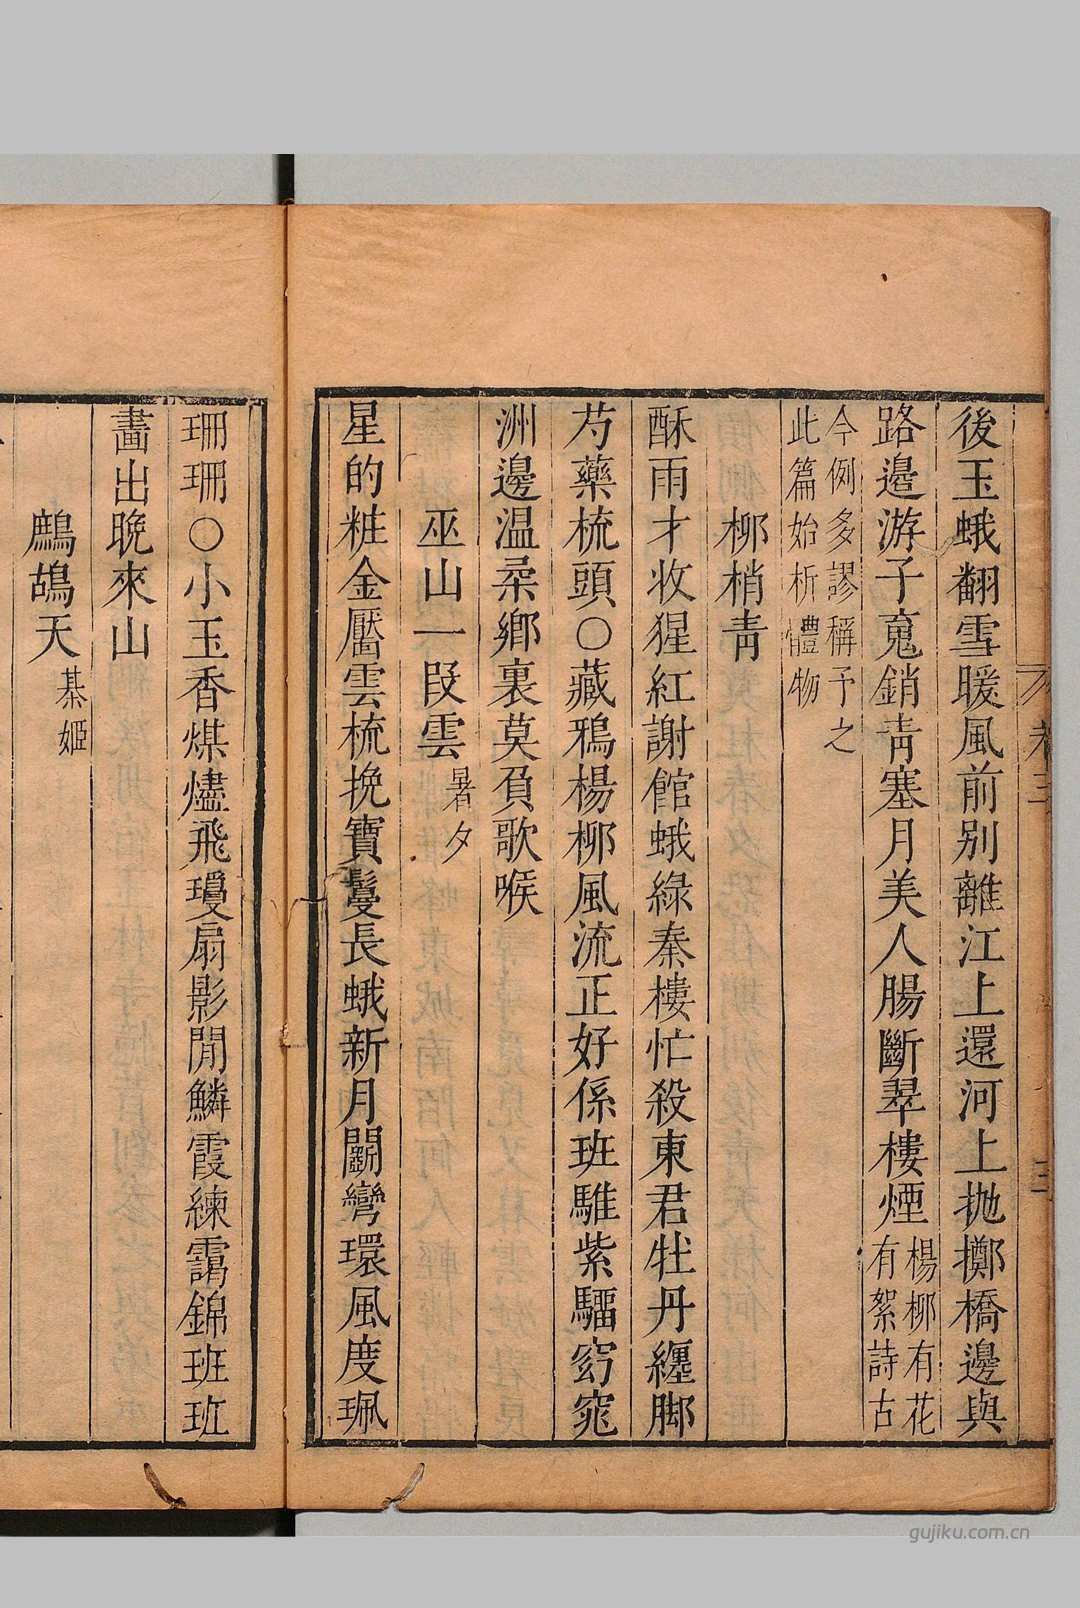 後玉蛾翻雪暖風前別離江上還河上拋擲橋邊與
路邊游子䰟銷青塞月美人腸斷翠樓煙楊柳有花
有絮詩古
今例多謬稱予之
此篇始析體物
柳梢青
酥雨才收猩紅謝館蛾綠秦樓忙殺東君牡丹纏腳
芍藥梳頭○藏鴉楊柳風流正好係班騅紫騮窈窕
洲邊温柔鄉裏莫負歌喉
巫山一段雲暑夕
星的粧金靨雲梳挽寶鬘長蛾新月鬭彎環風度珮
珊珊○小玉香煤燼飛瓊扇影閒鱗霞練靄錦班班
畵出晚來山
鷓鴣天棊姬
卷三
三
gujiku.com.cn